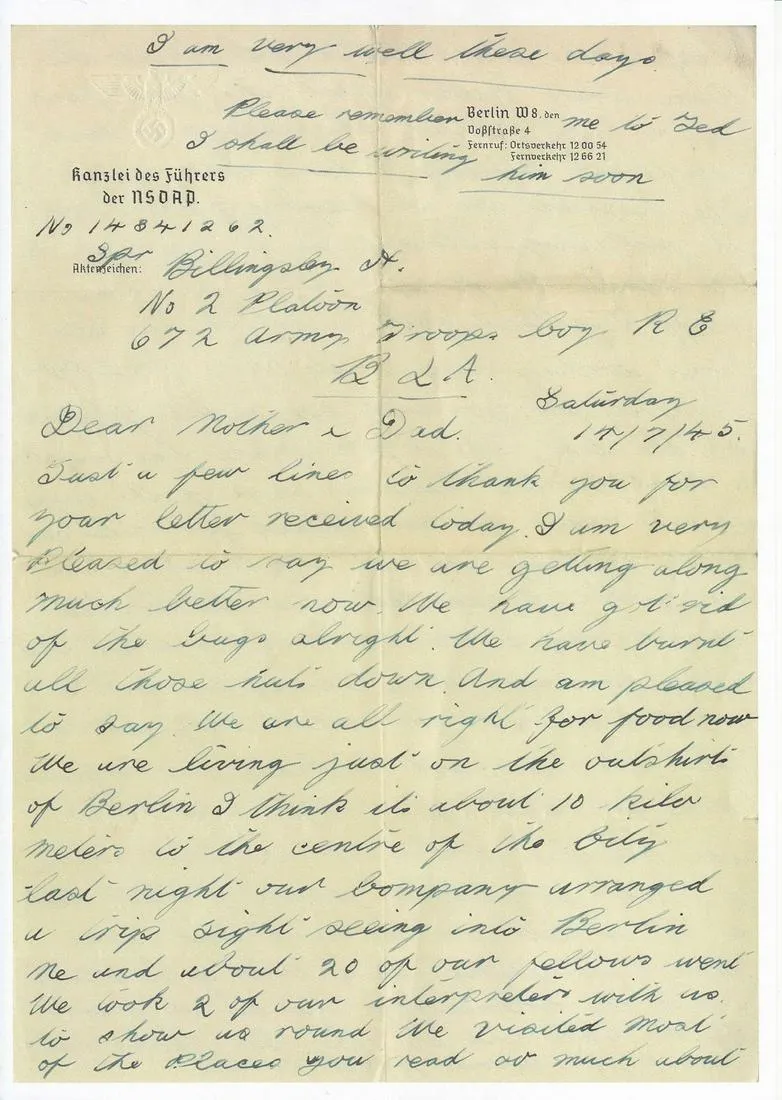 I am very well these days
Please remember me to Ted
I shall be writing him soon
Berlin W8. den
Voßstraße 4
Fernruf: Ortsverkehr 12 00 54
Fernverkehr 12 66 21
Kanzlei des Führers
der NSDAP.
No 14841262.
Spr Billingsley A.
Aktenzeichen:
No 2 Platoon
672 Army Troops Coy R E
B L A.
Saturday
14/7/45.
Dear Mother & Dad.
Just a few lines to thank you for
your letter received today. I am very
Pleased to say we are getting along
much better now. We have got rid
of the bugs alright. We have burnt
all those huts down. And am pleased
to say. We are all right for food now
We are living just on the outskirts
of Berlin I think its about 10 kilo
meters to the centre of the City
last night our Company arranged
a trip sight seeing into Berlin
Me and about 20 of our fellows went
We took 2 of our interpreters with us.
to show us round We visited most
of the Places you read so much about